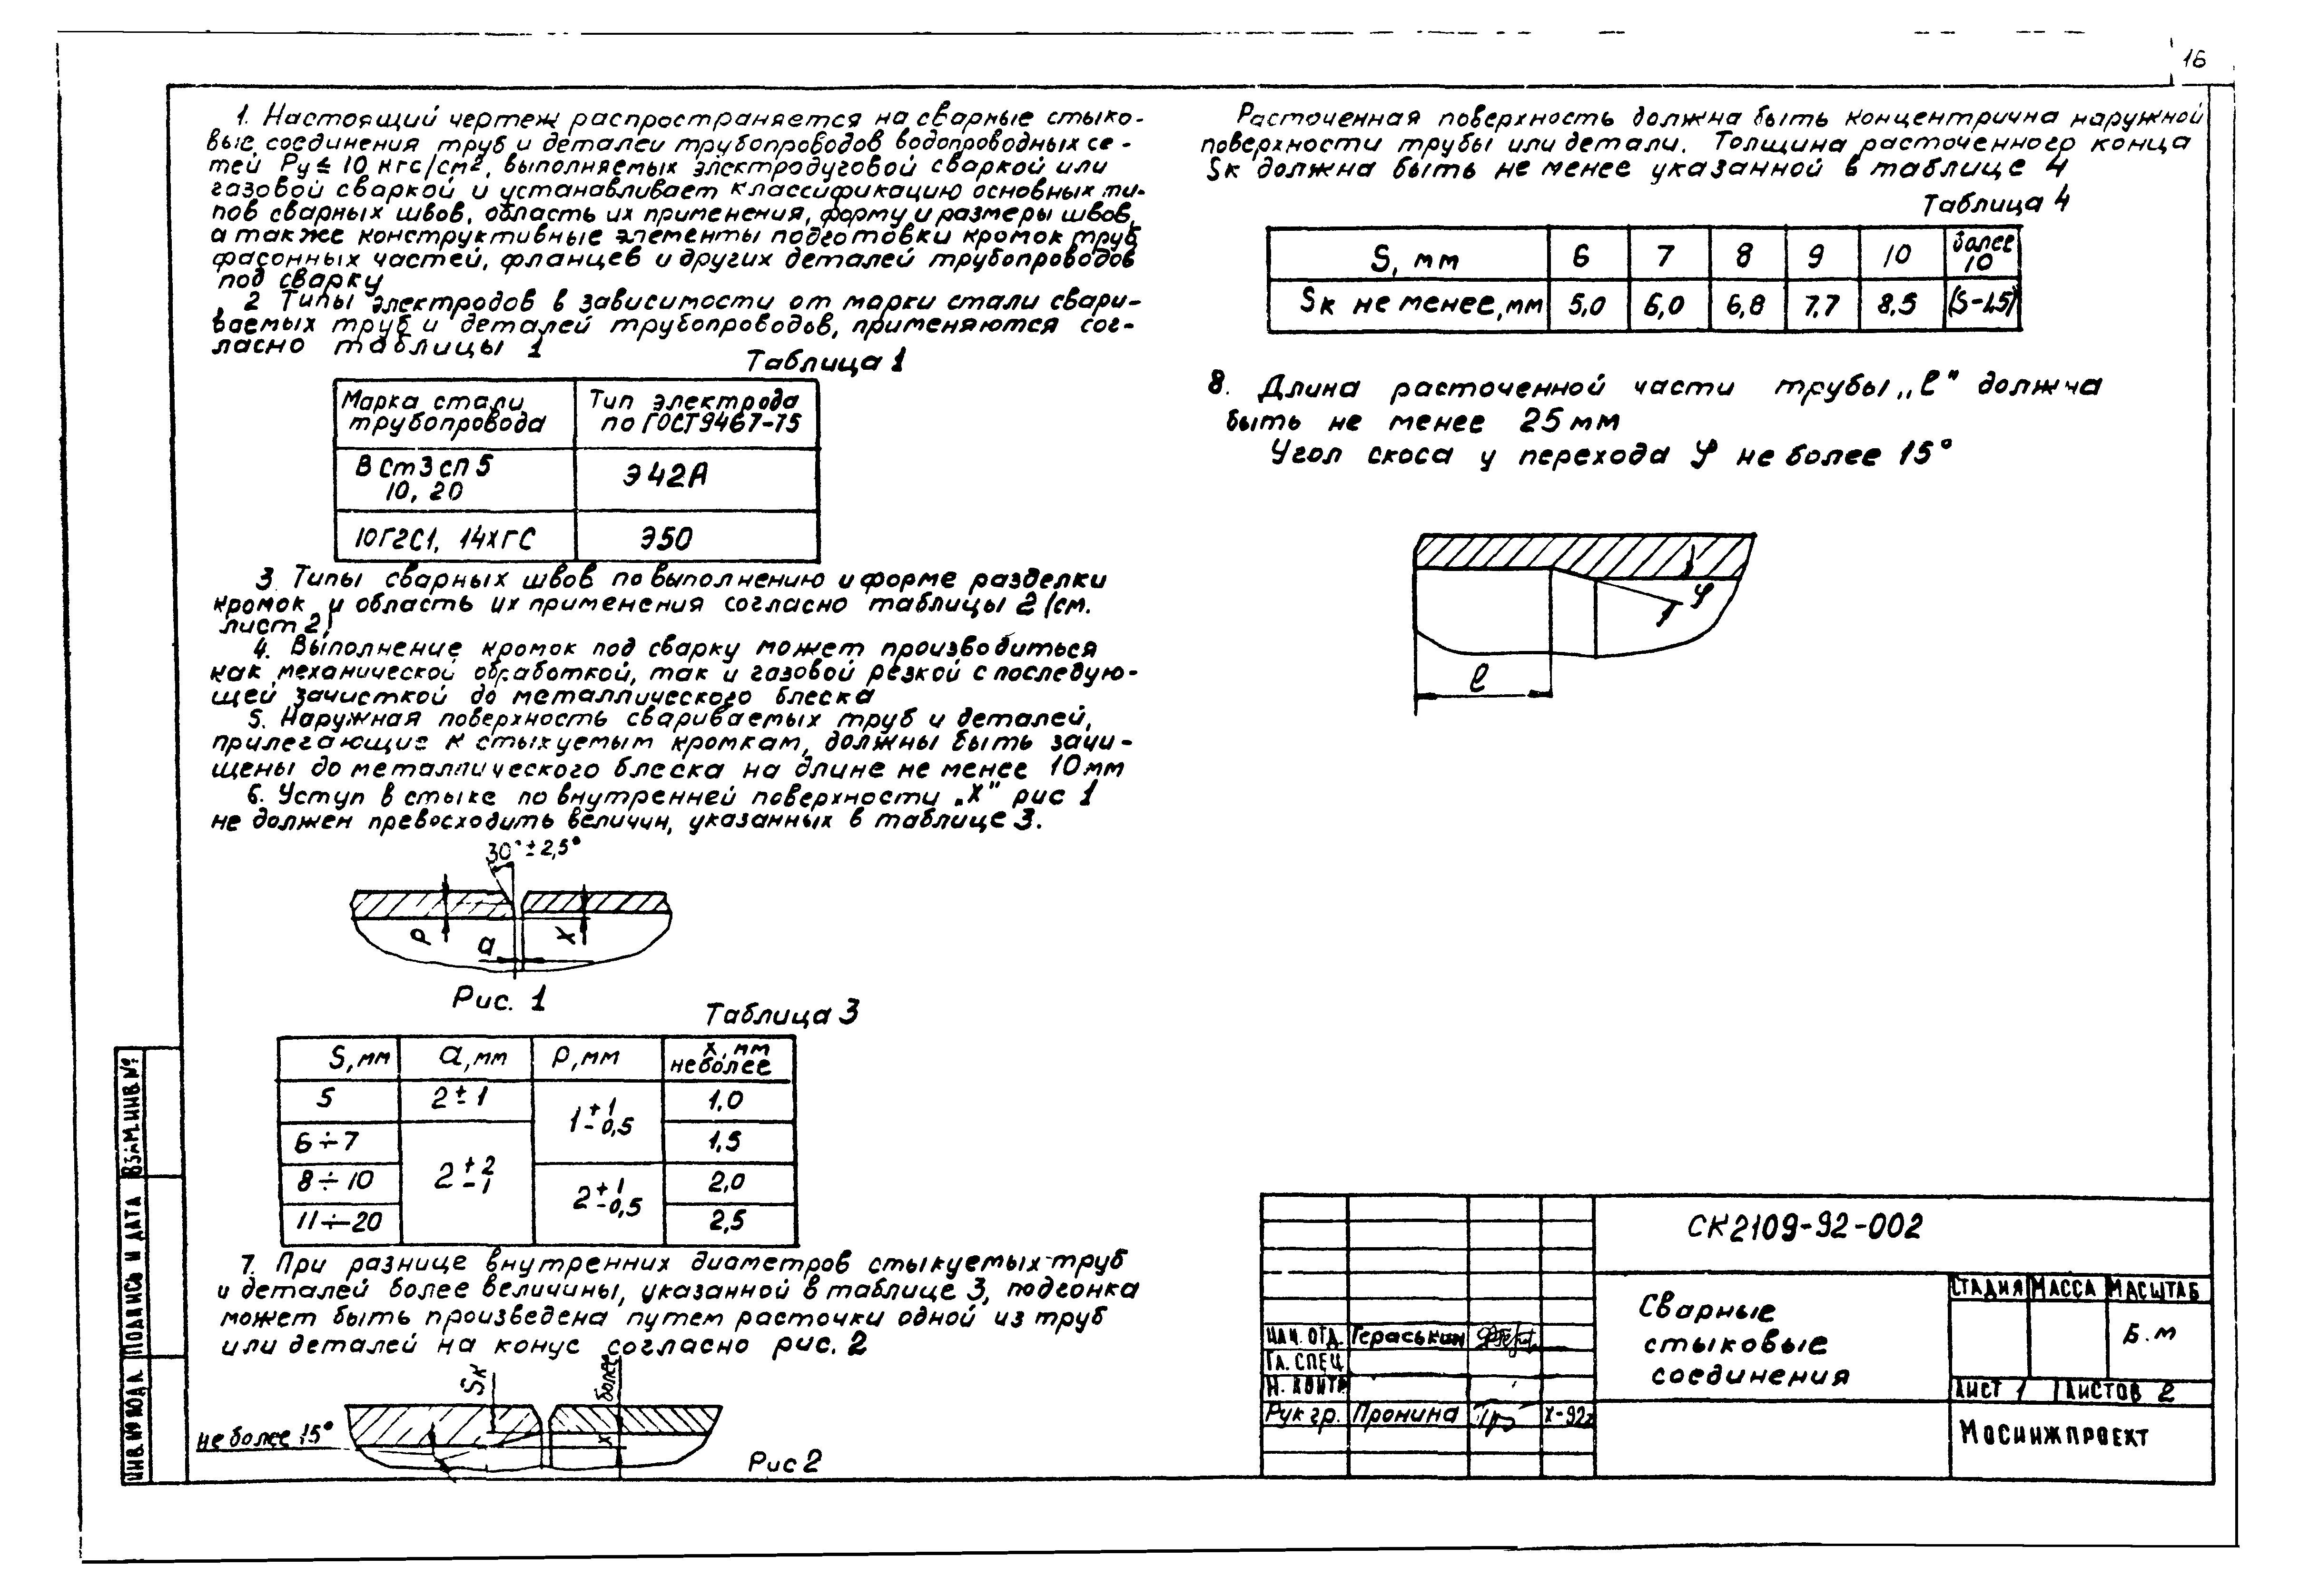 16
1. Настоящий чертеж распространяется на сварные стыко-
вые соединения труб и деталей трубопроводов водопроводных се-
тей Ру ≤ 10 кгс/см², выполняемых электродуговой сваркой или
газовой сваркой и устанавливает классификацию основных ти-
пов сварных швов, область их применения, форму и размеры швов,
а также конструктивные элементы подготовки кромок труб
фасонных частей, фланцев и других деталей трубопроводов
под сварку
2 Типы электродов в зависимости от марки стали свари-
ваемых труб и деталей трубопроводов, применяются сог-
ласно таблицы 1
Таблица 1
Марка стали трубопровода
Тип электрода по ГОСТ 9467-75
В Ст3 сп 5
10, 20
Э42А
10Г2С1, 14ХГС
Э50
3. Типы сварных швов по выполнению и форме разделки
кромок и область их применения согласно таблицы 2 (см.
лист 2)
4. Выполнение кромок под сварку может производиться
как механической обработкой, так и газовой резкой с последую-
щей зачисткой до металлического блеска
5. Наружная поверхность свариваемых труб и деталей,
прилегающие к стыкуемым кромкам, должны быть зачи-
щены до металлического блеска на длине не менее 10 мм
6. Уступ в стыке по внутренней поверхности „X" рис 1
не должен превосходить величин, указанных в таблице 3.
30° ± 2,5°
P
a
X
Рис. 1
Таблица 3
S, мм
a, мм
P, мм
x, мм не более
5
2 ± 1
1 +1 -0,5
1,0
6 ÷ 7
2 +2 -1
1,5
8 ÷ 10
2 +1 -0,5
2,0
11 ÷ 20
2,5
7. При разнице внутренних диаметров стыкуемых труб
и деталей более величины, указанной в таблице 3, подгонка
может быть произведена путем расточки одной из труб
или деталей на конус согласно рис. 2
Sк
более
x
не более 15°
Рис 2
Расточенная поверхность должна быть концентрична наружной
поверхности трубы или детали. Толщина расточенного конца
Sк должна быть не менее указанной в таблице 4
Таблица 4
S, мм
6
7
8
9
10
более 10
Sк не менее, мм
5,0
6,0
6,8
7,7
8,5
(S-1,5)
8. Длина расточенной части трубы „ℓ" должна
быть не менее 25 мм
Угол скоса у перехода φ не более 15°
φ
ℓ
СК 2109-92-002
Сварные
стыковые
соединения
СТАДИЯ
МАССА
МАСШТАБ
Б.м
ЛИСТ 1
ЛИСТОВ 2
МОСИНЖПРОЕКТ
НАЧ. ОТД.
Гераськин
ГЛ. СПЕЦ
Н. КОНТР
Рук гр.
Пронина
X-92г
ВЗАМ. ИНВ. №
ПОДПИСЬ И ДАТА
ИНВ. № ПОДЛ